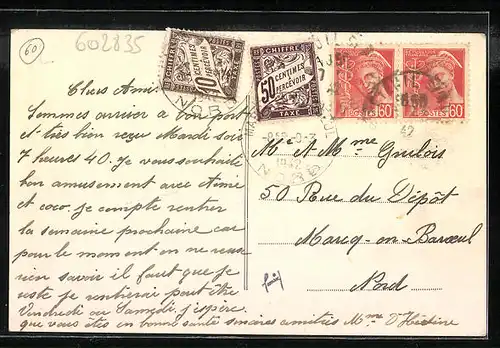 60
602835
Chers Amis
Sommes arriver a bon port
et très bien reçu Mardi soir
7 heures 40. Je vous souhaite
bon amusement avec Aimé
et coco. Je compte rentrer
la semaine prochaine car
pour le moment on ne veus
rien savoir il faut que je
reste je rentrerai peut être
Vendredi ou Samedi j'espère
que vous êtes en bonne santé sincères amitiés Mme
CHIFFRE
10 CENTIMES A PERCEVOIR
TAXE
CHIFFRE
50 CENTIMES A PERCEVOIR
TAXE
POSTES 60
POSTES 60
NORD
Mr et Mme Gulois
50 Rue du Dépôt
Marcq-en-Baroeul
Nord